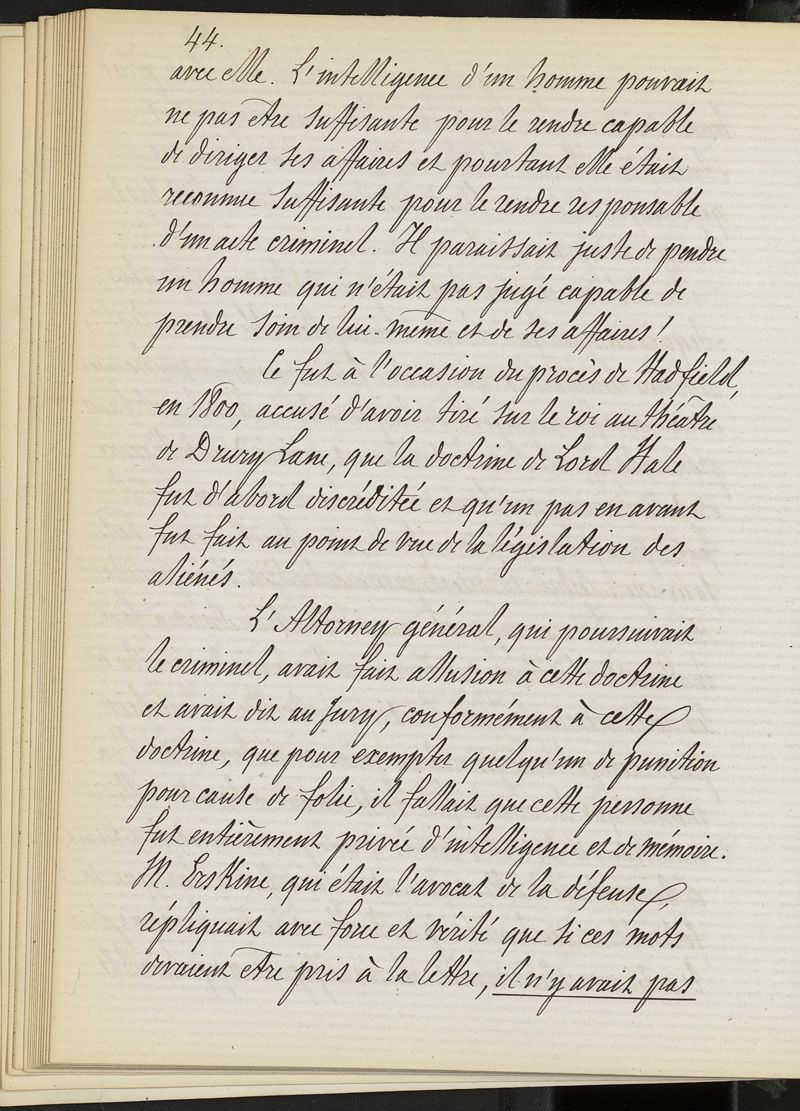 44.
avec elle. L'intelligence d'un homme pouvait
ne pas être suffisante pour le rendre capable
de diriger ses affaires et pourtant elle était
reconnue suffisante pour le rendre responsable
d'un acte criminel. Il paraissait juste de pendre
un homme qui n'était pas jugé capable de
prendre soin de lui-même et de ses affaires!
Ce fut à l'occasion du procès de Hadfield,
en 1800, accusé d'avoir tiré sur le roi au théâtre
de Drury Lane, que la doctrine de Lord Hale
fut d'abord discréditée et qu'un pas en avant
fut fait au point de vue de la législation des
aliénés.
L'Attorney général, qui poursuivait
le criminel, avait fait allusion à cette doctrine
et avait dit au Jury, conformément à cette
doctrine, que pour exempter quelqu'un de punition
pour cause de folie, il fallait que cette personne
fut entièrement privée d'intelligence et de mémoire.
M. Erskine, qui était l'avocat de la défense,
répliquait avec force et vérité que si ces mots
devaient être pris à la lettre, il n'y avait pas